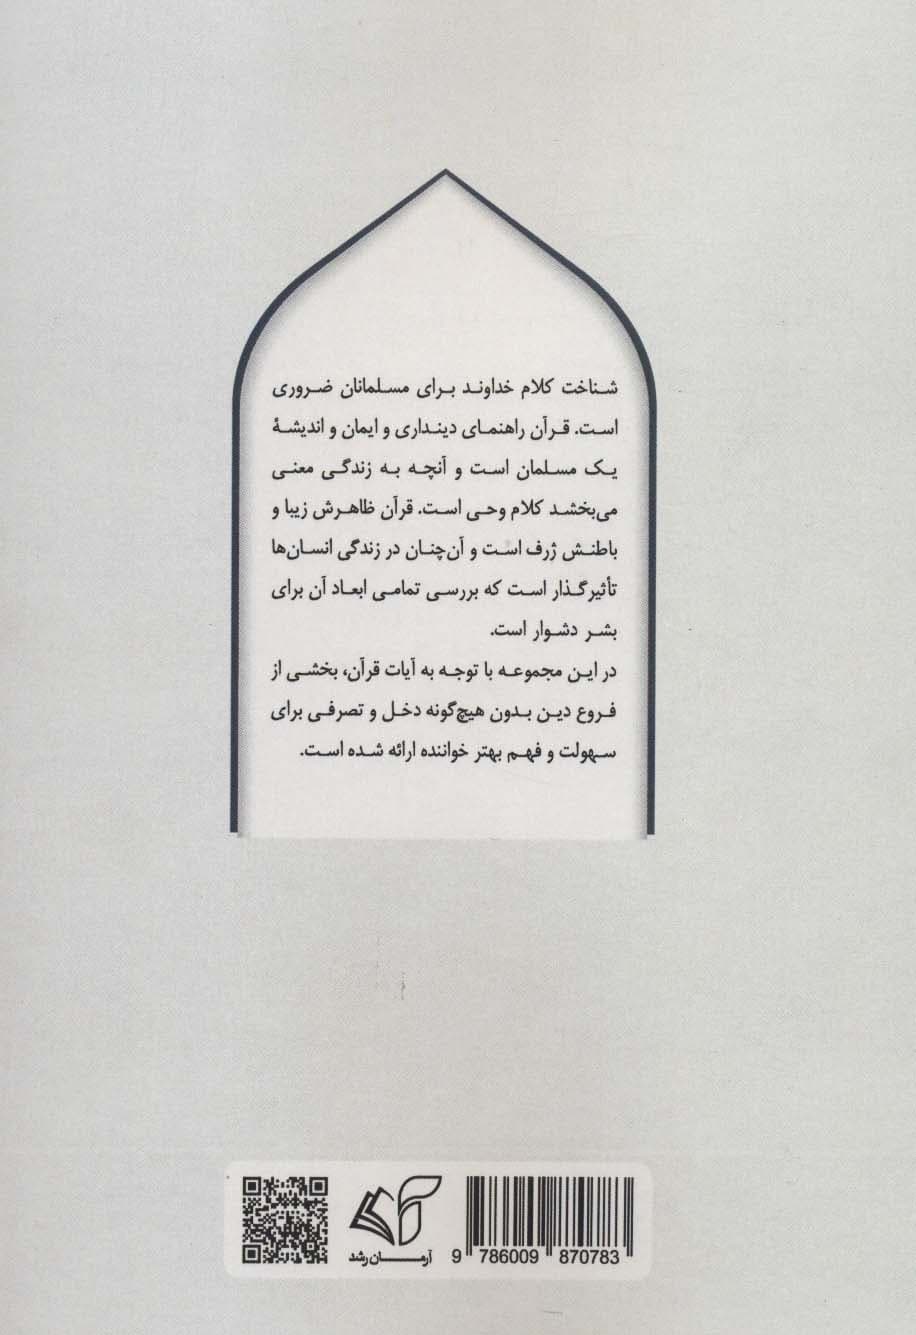 شناخت کلام خداوند برای مسلمانان ضروری
است. قرآن راهنمای دینداری و ایمان و اندیشهٔ
یک مسلمان است و آنچه به زندگی معنی
می‌بخشد کلام وحی است. قرآن ظاهرش زیبا و
باطنش ژرف است و آن‌چنان در زندگی انسان‌ها
تأثیرگذار است که بررسی تمامی ابعاد آن برای
بشر دشوار است.
در این مجموعه با توجه به آیات قرآن، بخشی از
فروع دین بدون هیچ‌گونه دخل و تصرفی برای
سهولت و فهم بهتر خواننده ارائه شده است.
آرمان رشد
9 786009 870783